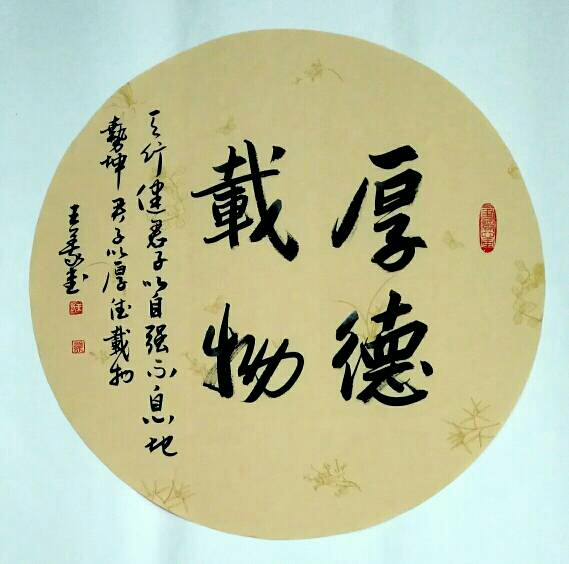 厚德
載物
天行健君子以自强不息地
勢坤君子以厚德載物